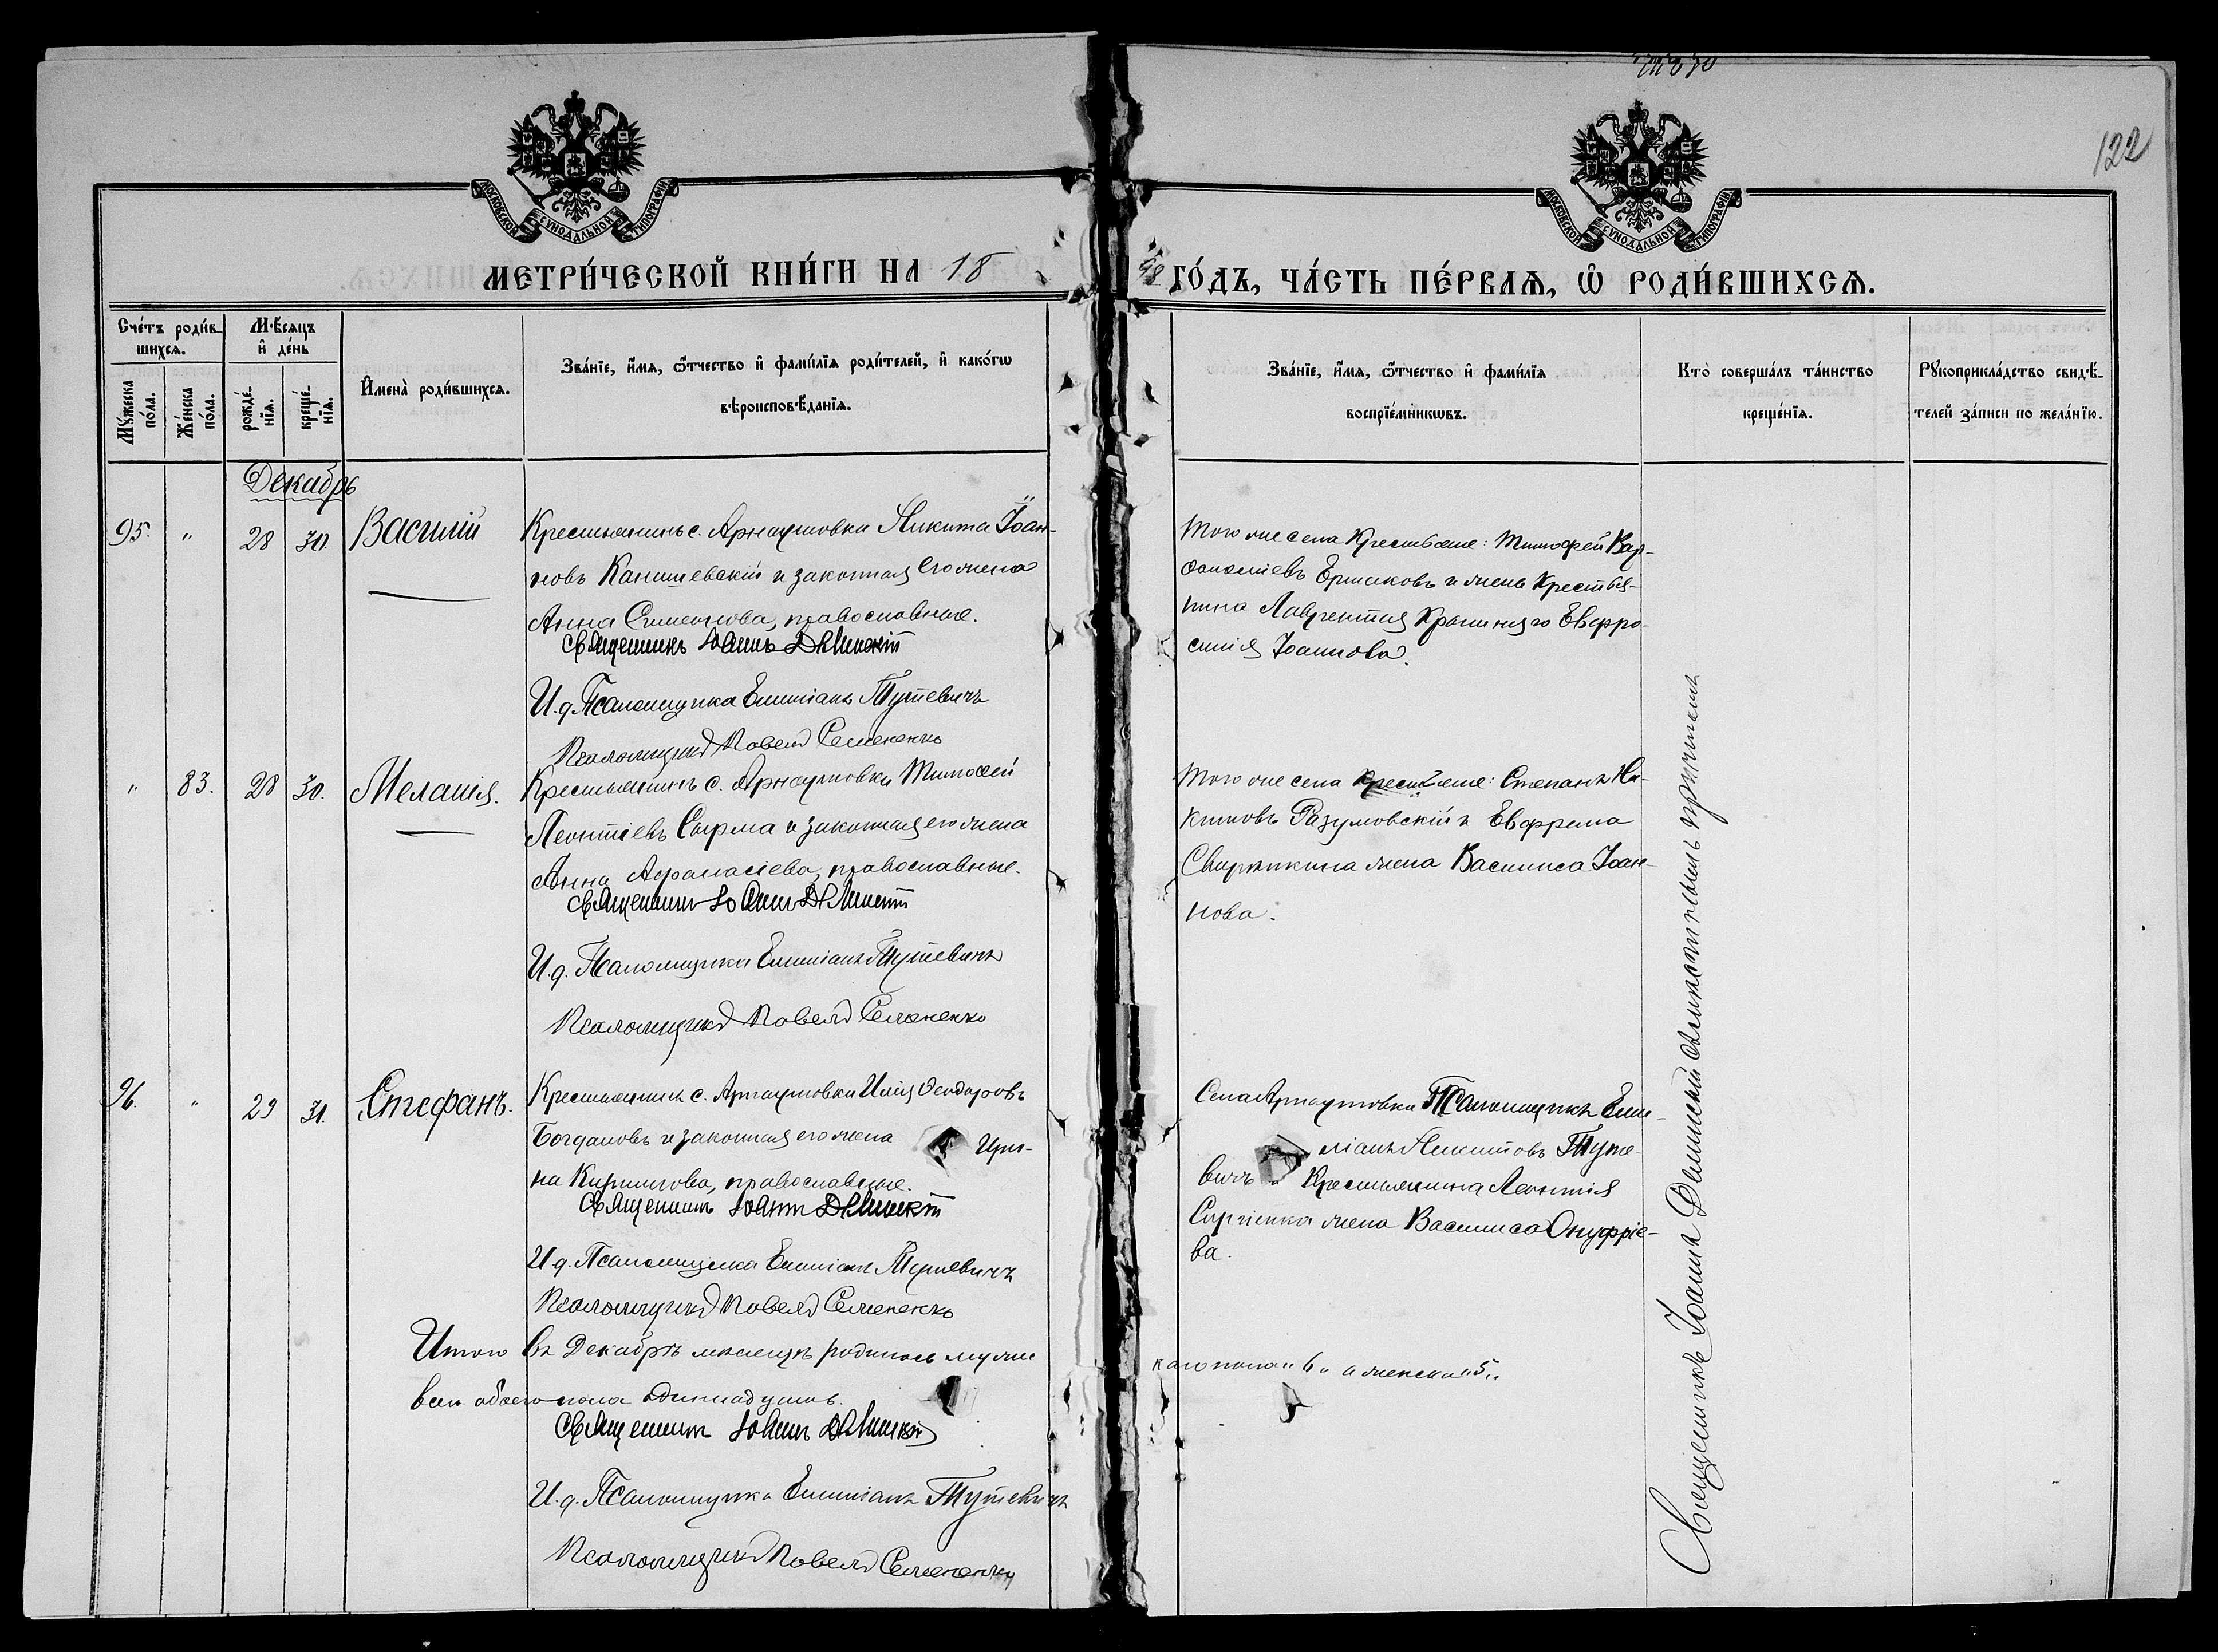 122
МОСКОВСКОЙ СѴНОДАЛЬНОЙ ТИПОГРАФІИ
МОСКОВСКОЙ СѴНОДАЛЬНОЙ ТИПОГРАФІИ
МЕТРИ́ЧЕСКОЙ КНИ́ГИ НА 18
98 ГО́ДЪ, ЧА́СТЬ ПЕ́РВАѦ, Ѡ҆ РОДИ́ВШИХСѦ.
Сче́тъ роди́в-
шихсѧ.
Мꙋ́жеска
по́ла.
Же́нска
по́ла.
Мѣ́сѧцъ
и҆ де́нь
рожде́-
нїѧ.
креще́-
нїѧ.
И҆мена̀ роди́вшихсѧ.
Зва́нїе, и҆́мѧ, ѻ҆́тчество и҆ фами́лїѧ роди́телей, и҆ како́гѡ
вѣроисповѣ́данїѧ.
Зва́нїе, и҆́мѧ, ѻ҆́тчество и҆ фами́лїѧ
воспрїе́мникѡвъ.
Кто̀ соверша́лъ та́инство
креще́нїѧ.
Рꙋкоприкла́дство свидѣ́-
телей за́писи по жела́нїю.
Декабрь
95. " 28 30. Василій
Крестьянинъ с. Арнаутовки Никита Іоан-
новъ Канишевскій и законная его жена
Анна Симеонова, православные.
Священникъ Іоаннъ Делинскій
И. д. Псаломщика Емиліанъ Тутевичъ
Псаломщикъ Павелъ Семененко
Того же села Крестьяне: Тимофей Вар-
фоломіевъ Ермаковъ и жена Крестья-
нина Лаврентия Евфро-
синія Іоаннова.
" 83. 28 30. Меланія.
Крестьянинъ с. Арнаутовки Тимофей
Леонтіевъ Сырма и законная его жена
Анна Афанасіева, православные.
Священникъ Іоаннъ Делинскій
И. д. Псаломщика Емиліанъ Тутевичъ
Псаломщикъ Павелъ Семененко
Того же села Крестьяне: Степанъ Ни-
китовъ Разумовскій и Евфрема
жена Василиса Іоан-
нова.
96. " 29 31. Стефанъ.
Крестьянинъ с. Арнаутовки Илія Феодоровъ
Богдановъ и законная его жена Ири-
на Кириллова, православные.
Священникъ Іоаннъ Делинскій
И. д. Псаломщика Емиліанъ Тутевичъ
Псаломщикъ Павелъ Семененко
Села Арнаутовки Псаломщикъ Еми-
ліанъ Никитовъ Туте-
вичъ и Крестьянина Леонтія
жена Василиса Онуфріе-
ва.
Итого въ Декабрѣ мѣсяцѣ родилось муже
ска го пола "6" а женска "5"
всего обоего пола
Священникъ Іоаннъ Делинскій
И. д. Псаломщика Емиліанъ Тутевичъ
Псаломщикъ Павелъ Семененко
Священникъ Іоаннъ Делинскій съ причтомъ